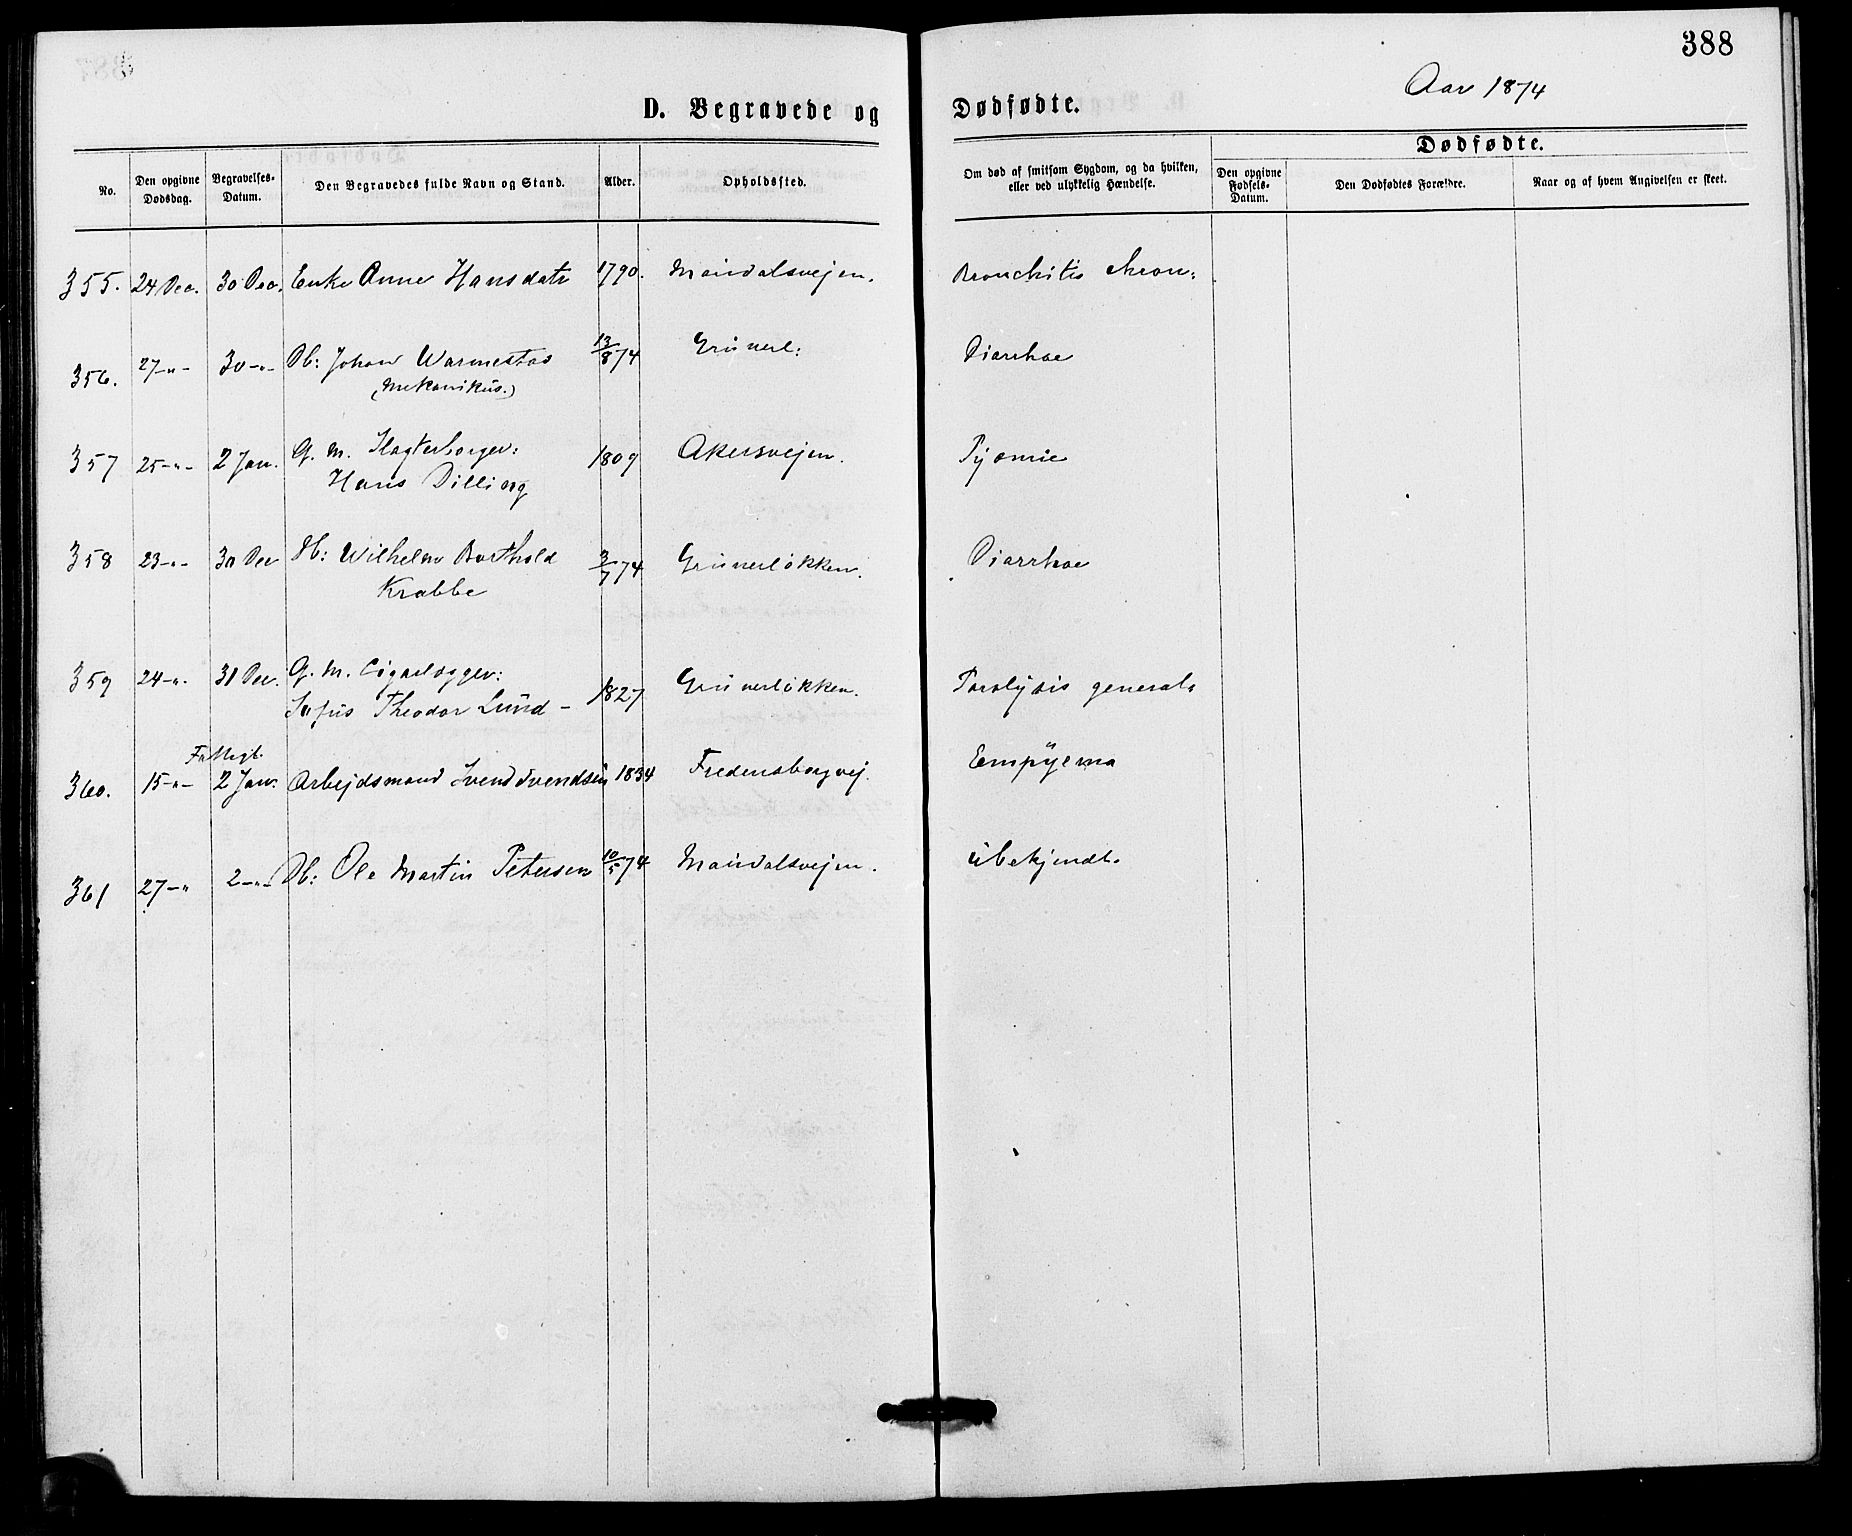 388
Aar 1874
D. Begravede og Dødfødte.
Dødfødte.
No. | Den opgivne Dødsdag. | Begravelses-Datum. | Den Begravedes fulde Navn og Stand. | Alder. | Opholdssted. | Om død af smitsom Sygdom, og da hvilken, eller ved ulykkelig Hændelse. | Den opgivne Fødsels-Datum. | Den Dødfødtes Forældre. | Naar og af hvem Angivelsen er skeet.
355. 24 Dec. 30 Dec. Enke Anne Hansdatr 1790. Maridalsvejen. Bronchitis chron:
356. 27-"- 30-"- Db: Johan Warmestad 13/8 74 Grünerl: Diarrhoe
(Mekanikus.)
357 25-"- 2 Jan. G. M. Slagterborger: 1809 Akersvejen. Pyæmie
Hans Dilling
358 23-"- 30 Dec Db: Wilhelm Barthold 3/7 74 Grünerløkken. Diarrhoe
Krabbe
359 24-"- 31 Dec. G. M. Cigarlægger: 1827 Grünerløkken. Paralysis general.
Sofus Theodor Lund -
Fattigl.
360. 15-"- 2 Jan. Arbejdsmand Svend Svendsen 1834 Fredensborgvej. Empyema
361 27-" 2-"- Db: Ole Martin Petersen 10/5 74 Maridalsvejen. Ubekjendt.